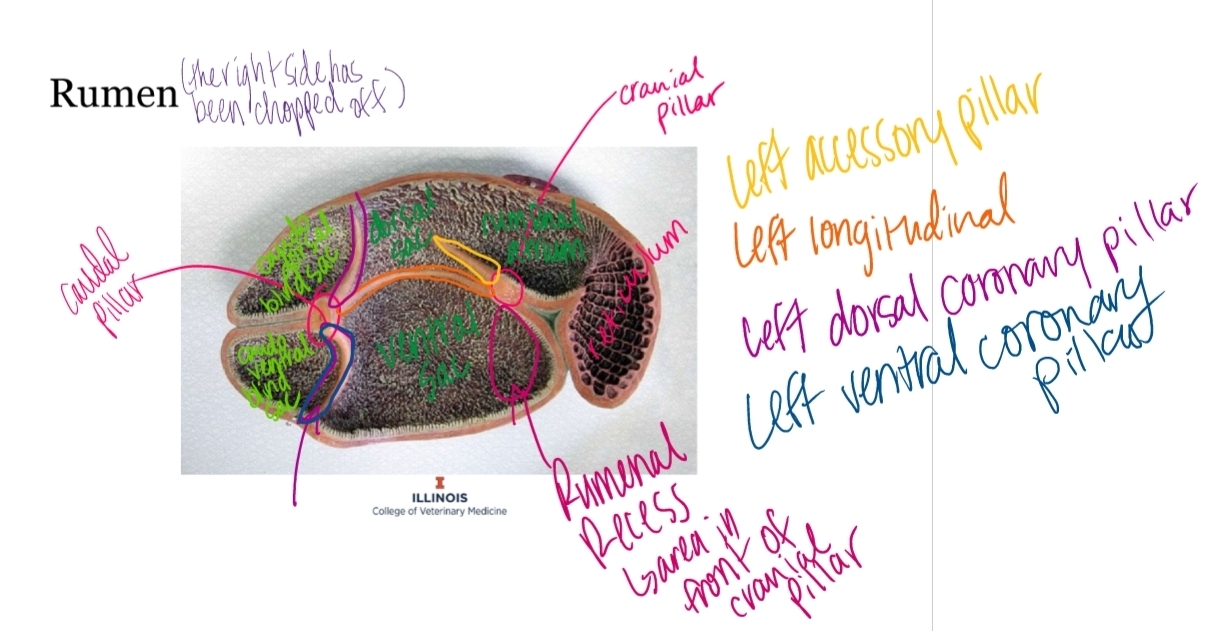 Rumen (the right side has
been chopped off)
cranial
pillar
left accessory pillar
left longitudinal
left dorsal coronary pillar
left ventral coronary
pillar
caudal
pillar
caudo
dorsal
blind sac
dorsal
sac
ruminal
atrium
reticulum
caudo
ventral
blind
sac
ventral
sac
Rumenal
Recess
↳ area in
front of
cranial
pillar
I
ILLINOIS
College of Veterinary Medicine